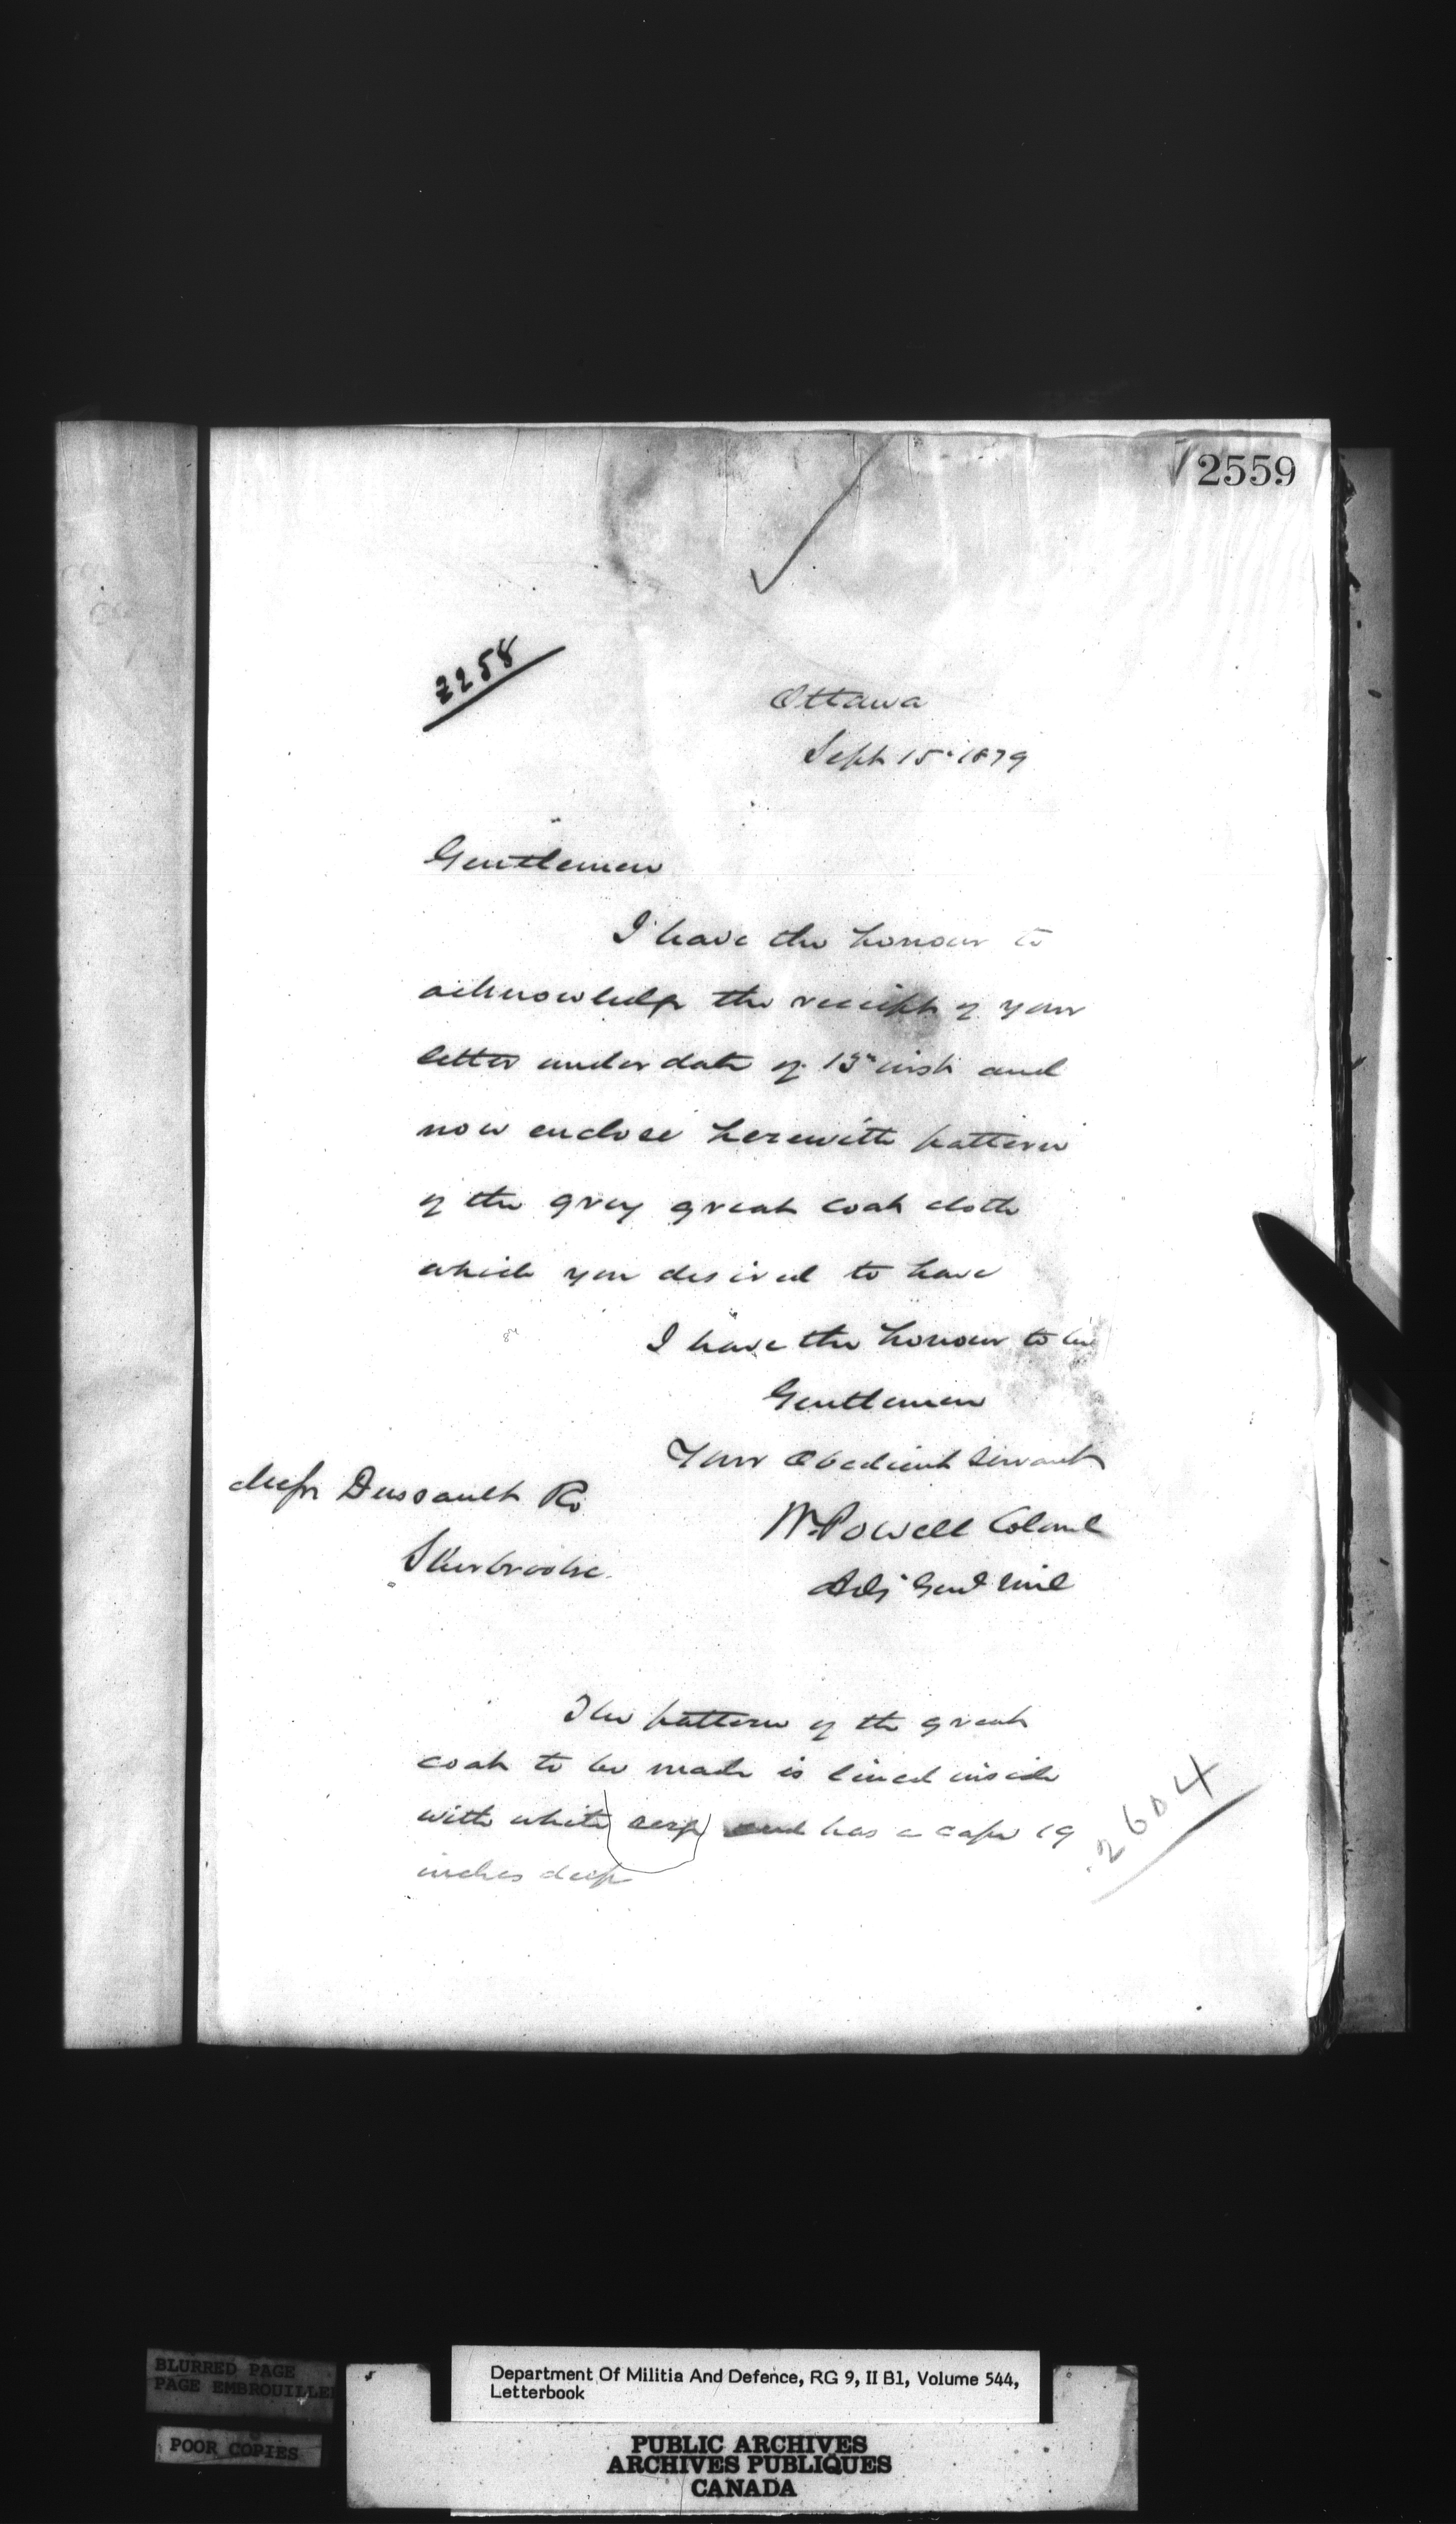 2559
2258
Ottawa
Sept 15th 1879
Gentlemen
I have the honour to
acknowledge the receipt of your
letter under date of 13th inst and
now enclose herewith pattern
of the grey great coat cloth
which you desired to have
I have the honour to be
Gentlemen
Your Obedient Servant
W Powell Colonel
Adj Genl Mil
Messrs Dussault Co
Sherbrooke.
The pattern of the great
coat to be made is lined inside
with white serge and has a cape 19
inches deep
2604
BLURRED PAGE
PAGE EMBROUILLE
POOR COPIES
Department Of Militia And Defence, RG 9, II B1, Volume 544,
Letterbook
PUBLIC ARCHIVES
ARCHIVES PUBLIQUES
CANADA